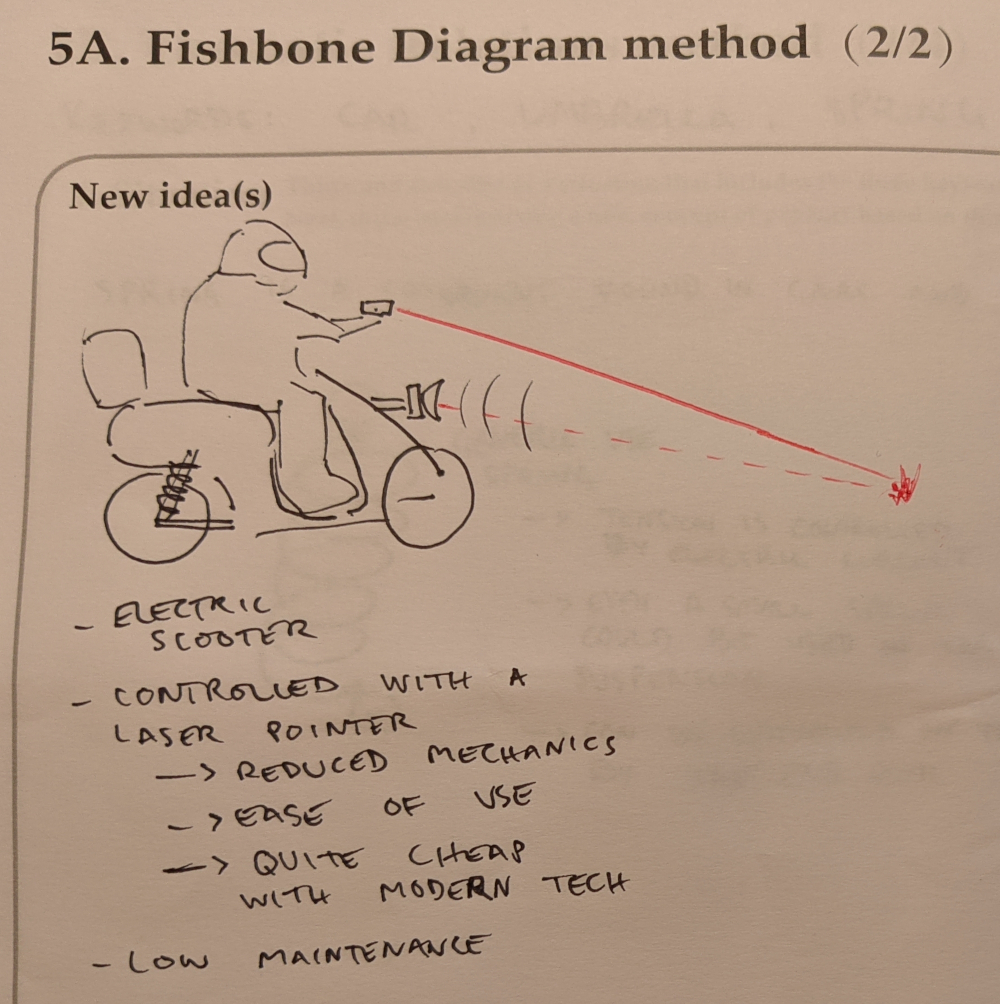 5A. Fishbone Diagram method (2/2)
New idea(s)
- ELECTRIC
SCOOTER
- CONTROLLED WITH A
LASER POINTER
-> REDUCED MECHANICS
-> EASE OF USE
-> QUITE CHEAP
WITH MODERN TECH
- LOW MAINTENANCE